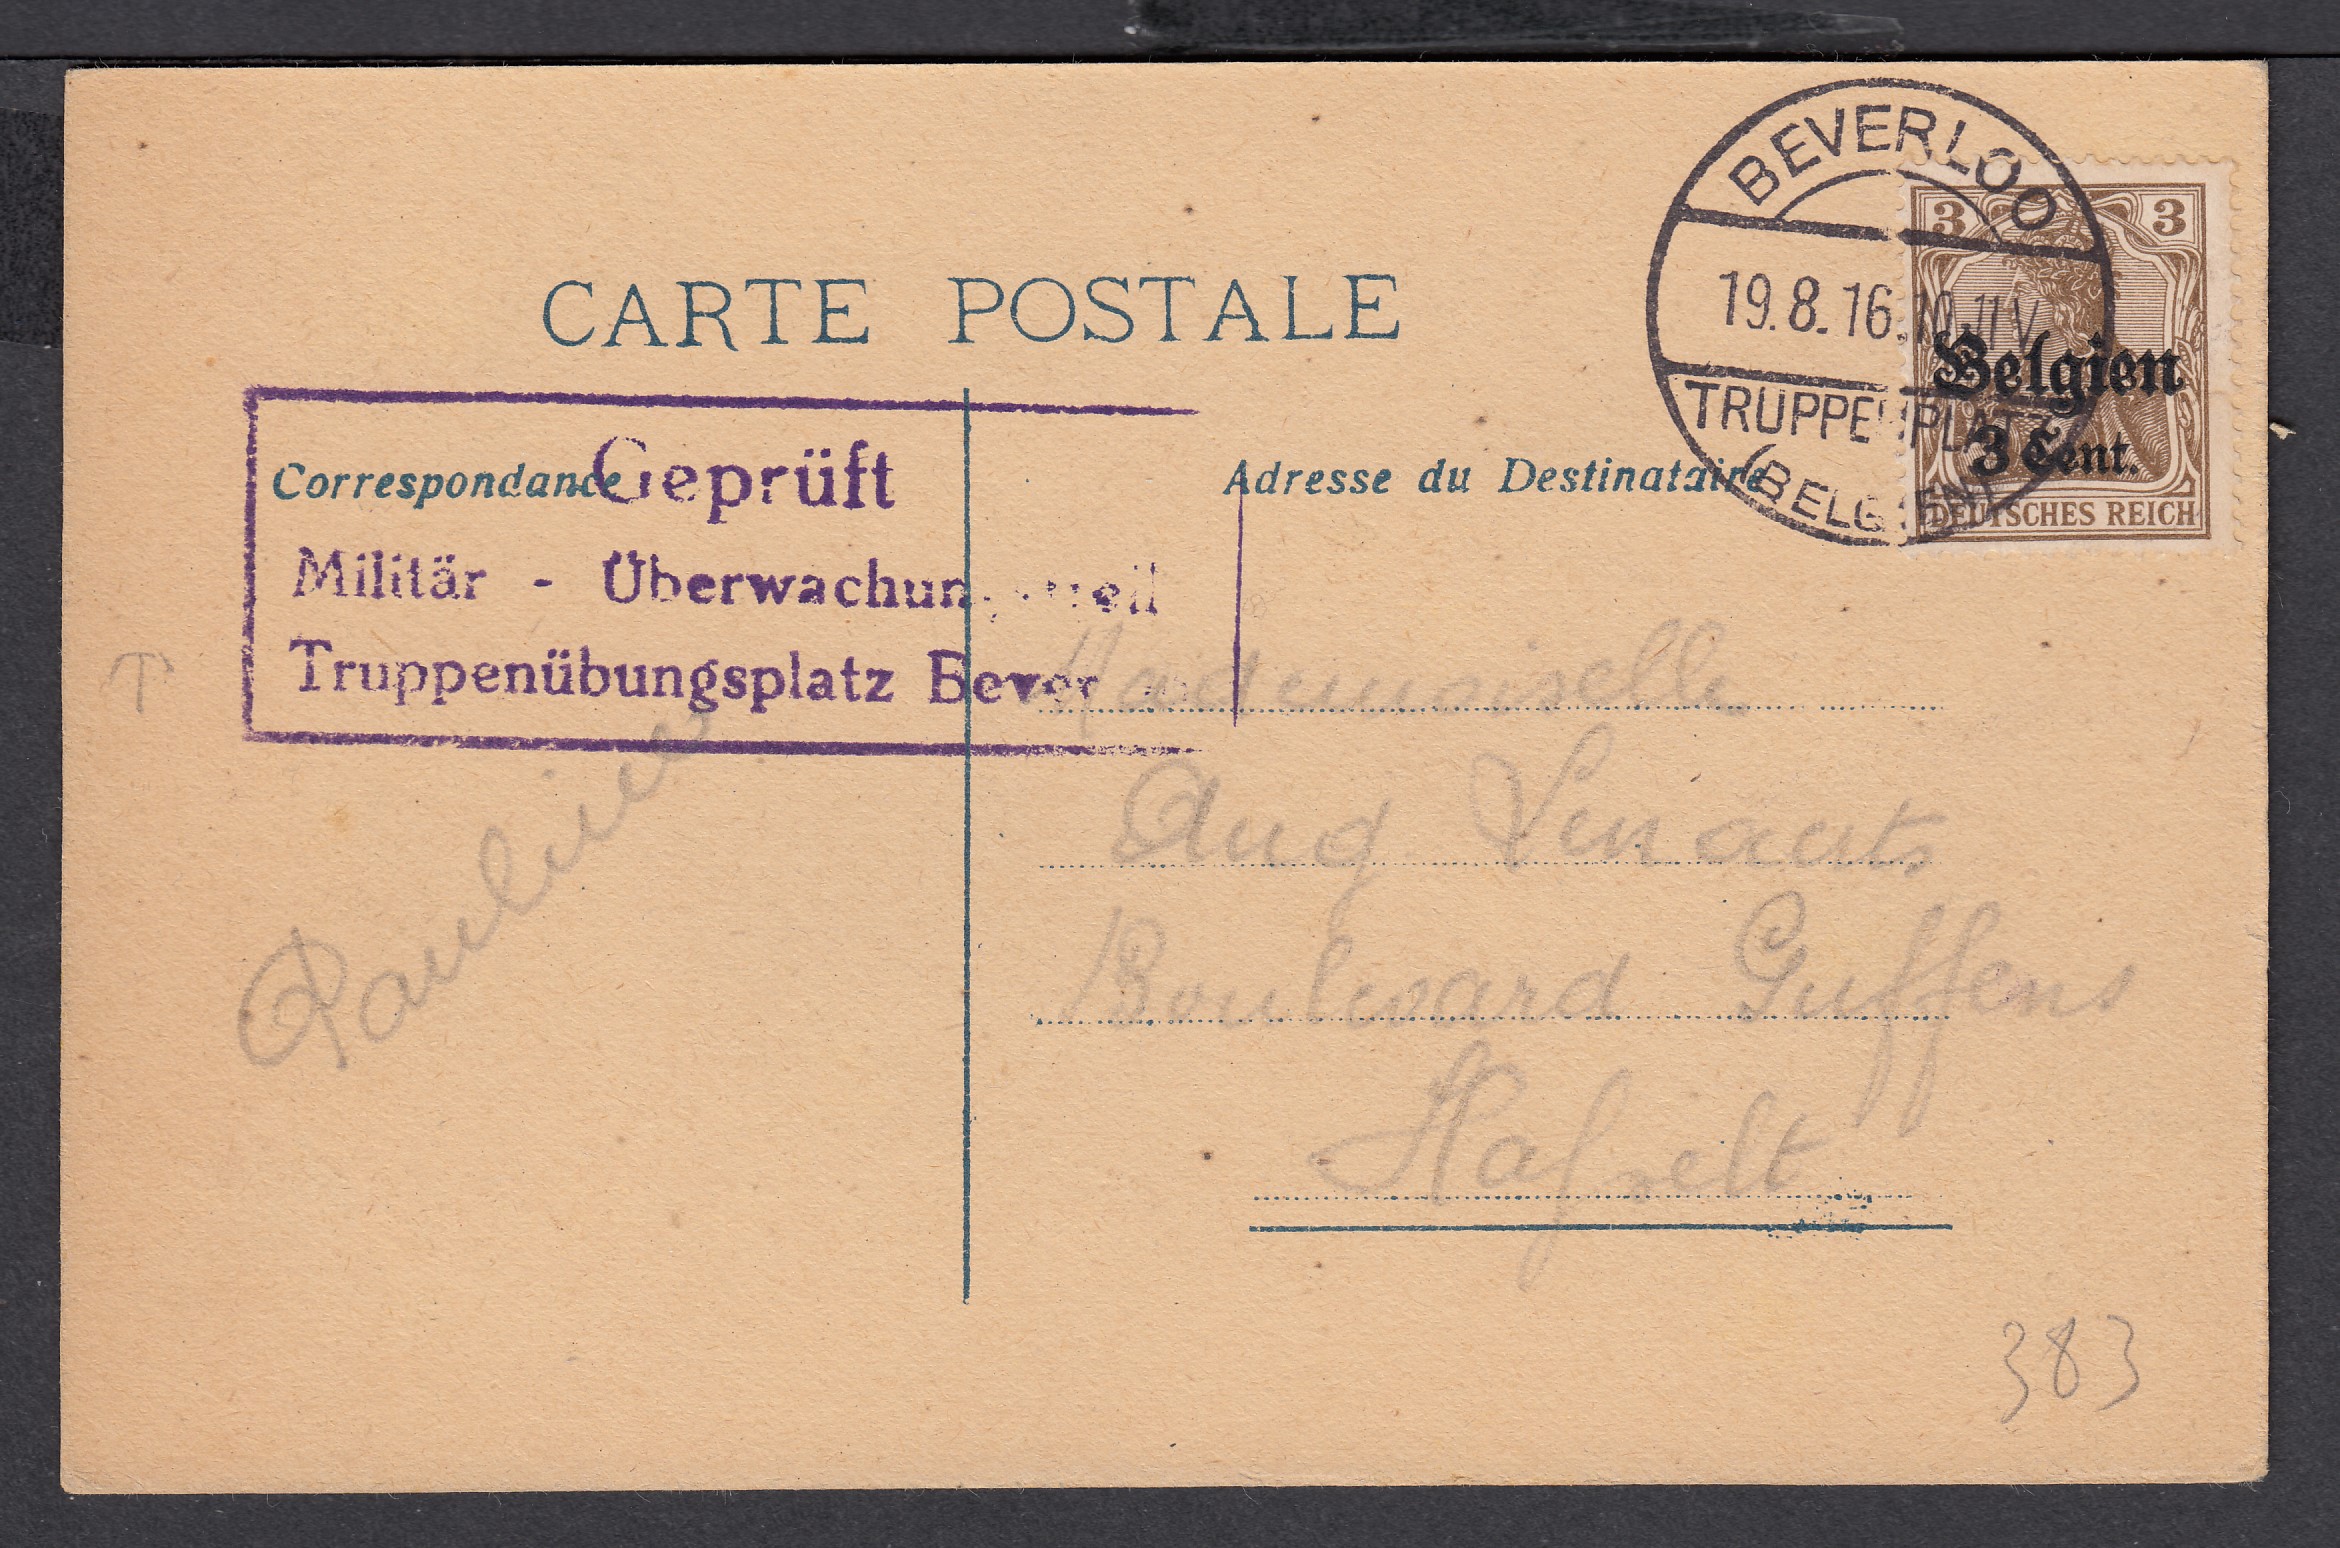 BEVERLOO
19.8.16.10-11V
TRUPPENPLATZ
(BELGIEN)
3 3
Belgien
3 Cent.
DEUTSCHES REICH
CARTE POSTALE
Correspondance
Adresse du Destinataire
Geprüft
Militär - Überwachun
Truppenübungsplatz Bever
Pauline
Mademoiselle
Aug
Boulevard Guffens
Hasselt
383